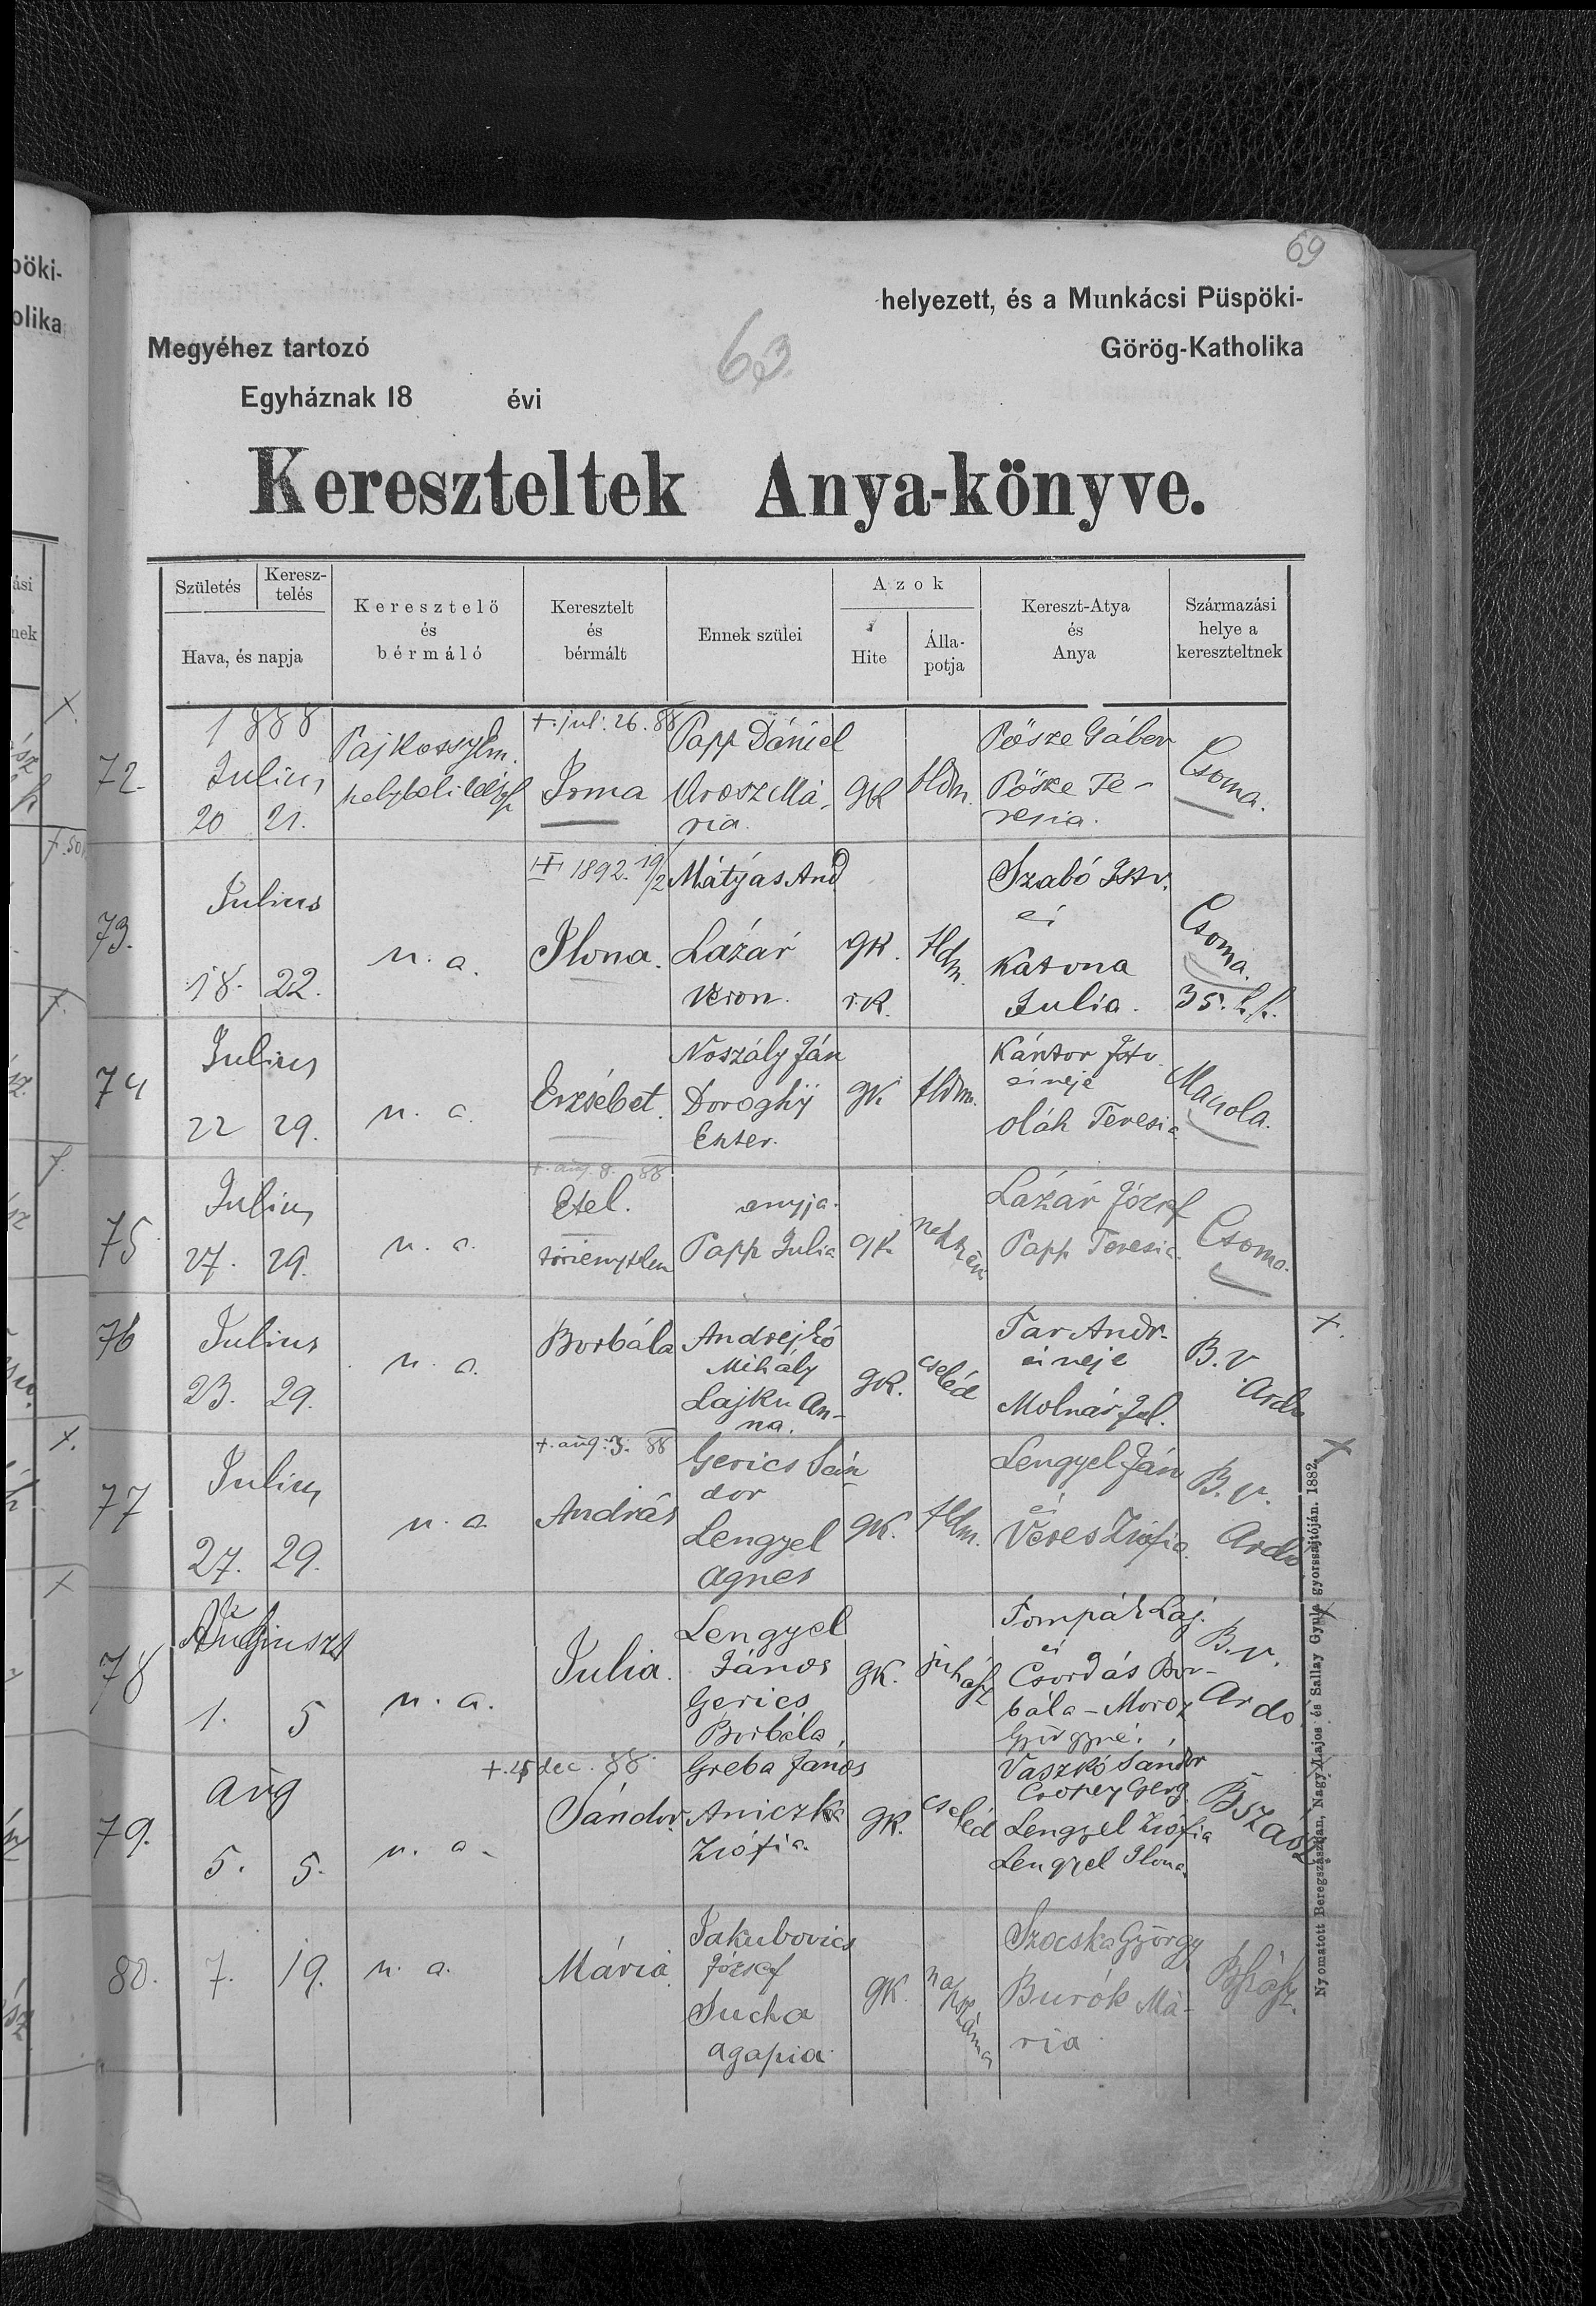 69
helyezett, és a Munkácsi Püspöki-
Megyéhez tartozó
63
Görög-Katholika
Egyháznak 18 évi
Kereszteltek Anya-könyve.
Születés
Keresz-
telés
Hava, és napja
Keresztelő
és
bérmáló
Keresztelt
és
bérmált
Ennek szülei
Azok
Hite
Álla-
potja
Kereszt-Atya
és
Anya
Származási
helye a
kereszteltnek
72.
1888
Julius
20 21.
Pajkossy Em.
helybeli
+. jul. 26. 88
Irma
Papp Dániel
Orosz Má-
ria.
gk
fldm.
Pősze Gábor
Pősze Te-
resia.
Csoma.
73.
Julius
18. 22.
u. a.
1892. 19/2
Ilona.
Mátyás And
Lázár
Veron.
gk.
r.k.
fldm.
Szabó Istv.
és
Katona
Julia.
Csoma.
35.
74
Julius
22 29.
u. a.
Erzsébet.
Noszály Ján
Doroghy
Eszter.
gk
fldm.
Kántor Istv.
és neje
oláh Teresia
Macsola.
75
Julius
27. 29.
u. a.
+. aug. 8. 88
Etel.
törvénytlen
anyja.
Papp Julia
gk
Lázár József
Papp Teresia.
Csoma.
76
Julius
23. 29.
u. a.
Borbála
Andrejkó
Mihály
Lajku An-
na.
gk.
cseléd
Tar Andr.
és neje
Molnár Jul.
B. v.
Ardo
+.
77
Julius
27. 29.
u. a
+. aug. 3. 88
András
Gerics Sán
dor
Lengyel
Agnes
gk.
fldm.
Lengyel Ján
és
Veres Zsófia.
B. v.
Ardó
+
78
Auguszt
1. 5
u. a.
Julia.
Lengyel
János
Gerics
Borbála
gk.
juhász
Tompák Laj.
és
Csordás Bor-
bála - Moroz
Györgyné.
B. v.
Ardo
79.
aug
5. 5.
u. a.
+. 25 dec. 88.
Sándor.
Greba János
Aniczka
Zsófia.
gk.
cseléd
Vaszkó Sándor
Lengyel Zsófia
Lengyel Ilona.
Bszász
80.
7. 19.
u. a.
Mária.
Jakubovics
József
Sucha
agapia
gk.
napszámos
Szocska György
Burók Má-
ria
Bszász.
Nyomatott Beregszászban, Nagy Lajos és Sallay Gyula gyorssajtóján. 1882.